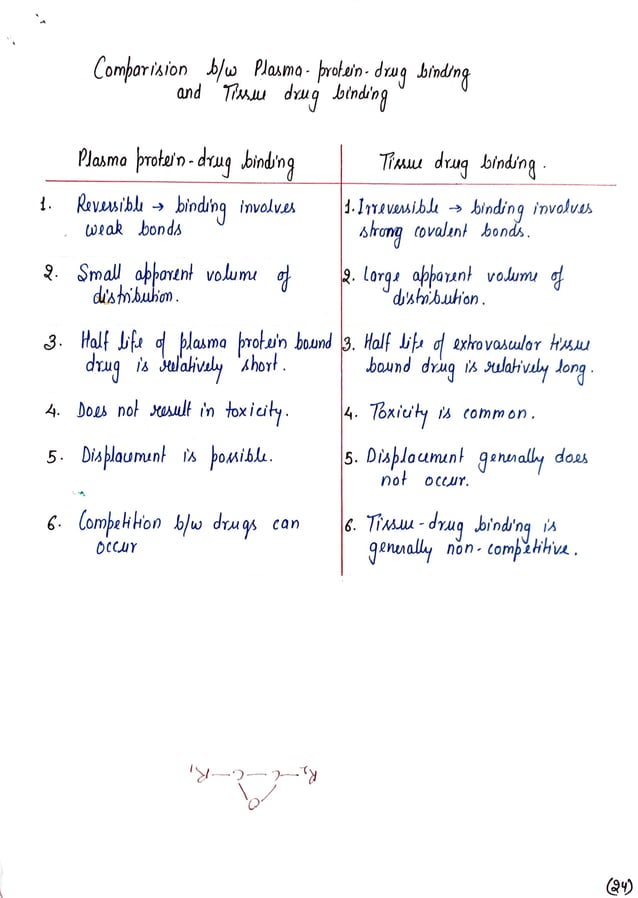 Comparision b/w Plasma-protein-drug binding
and Tissue drug binding
Plasma protein-drug binding
Tissue drug binding.
1. Reversible → binding involves
weak bonds
1. Irreversible → binding involves
strong covalent bonds.
2. Small apparent volume of
distribution.
2. Large apparent volume of
distribution.
3. Half life of plasma protein bound
drug is relatively short.
3. Half life of extravascular tissue
bound drug is relatively long.
4. Does not result in toxicity.
4. Toxicity is common.
5. Displacement is possible.
5. Displacement generally does
not occur.
6. Competition b/w drugs can
occur
6. Tissue-drug binding is
generally non-competitive.
R2-C-C-R1
O
(24)